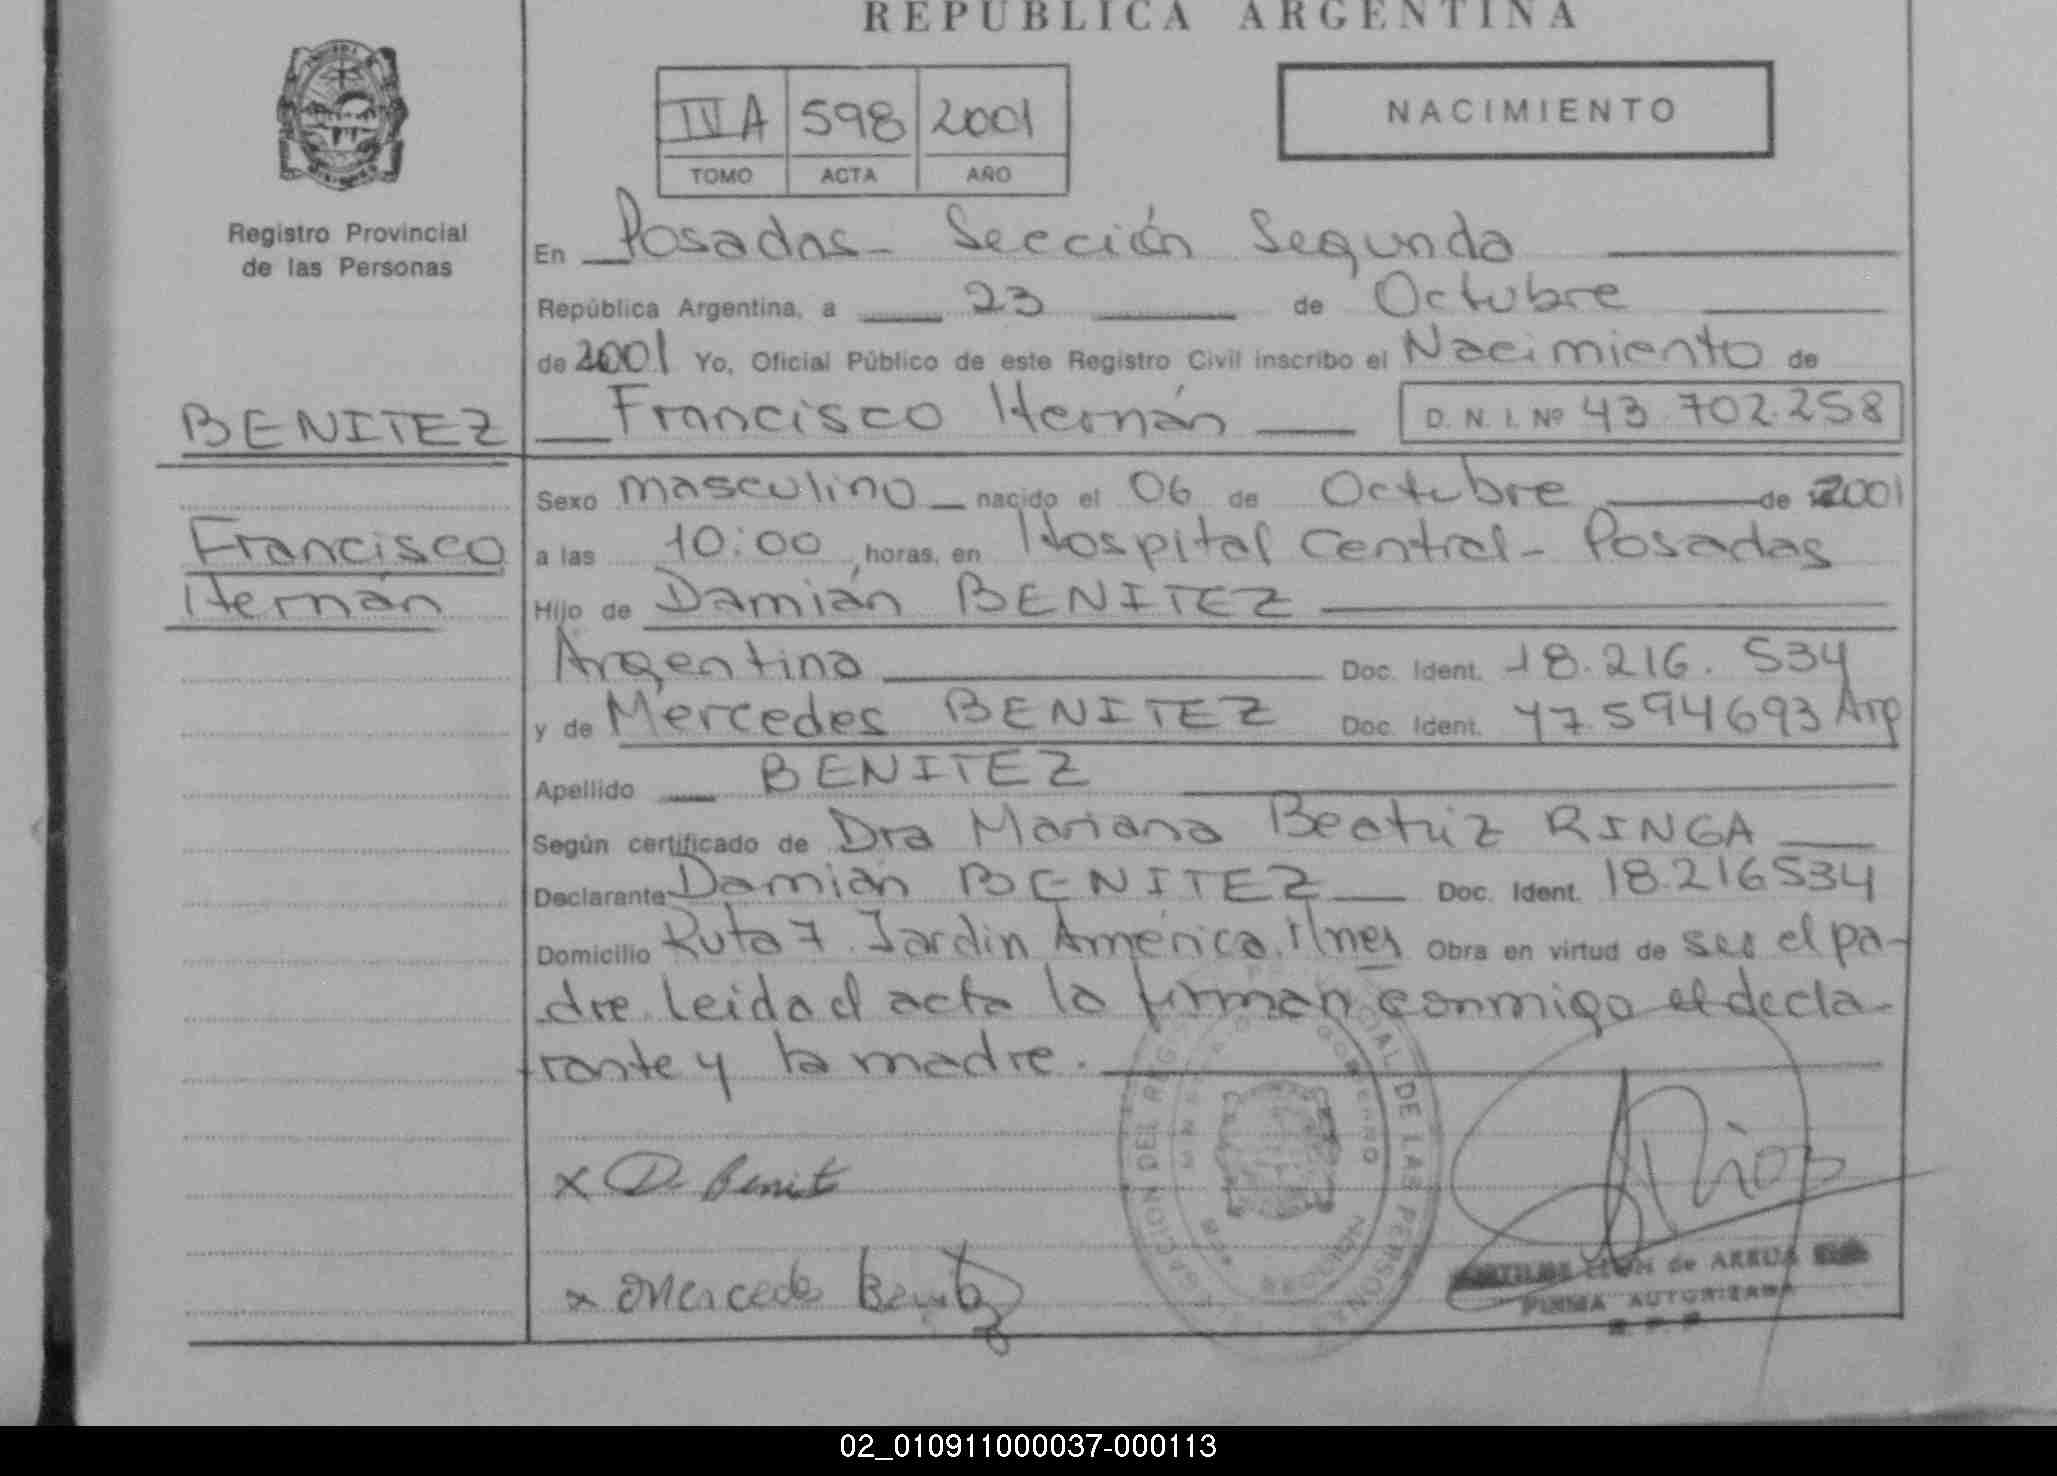 REPUBLICA ARGENTINA
IV A 598 2001
TOMO ACTA AÑO
NACIMIENTO
Registro Provincial
de las Personas
En Posadas - Sección Segunda
República Argentina, a 23 de Octubre
de 2001 Yo, Oficial Público de este Registro Civil inscribo el Nacimiento de
BENITEZ
Francisco Hernán D. N. I. Nº 43.702.258
Sexo masculino nacido el 06 de Octubre de 2001
Francisco
a las 10:00 horas, en Hospital Central - Posadas
Hernán
Hijo de Damián BENITEZ
Argentina Doc. Ident. 18.216.534
y de Mercedes BENITEZ Doc. Ident. 47.594693 Arg
Apellido BENITEZ
Según certificado de Dra Mariana Beatriz RINGA
Declarante Damián BENITEZ Doc. Ident. 18.216534
Domicilio Ruta 7 Jardin América. Mnes Obra en virtud de ser el pa-
dre. leida el acta la firman conmigo el decla-
rante y la madre.
DEL REG DE LAS PERSONAS
GOBIERNO
x D. Benit
x Mercedes Benitez
Rios
de ARRUA
FIRMA AUTORIZADA
02_010911000037-000113